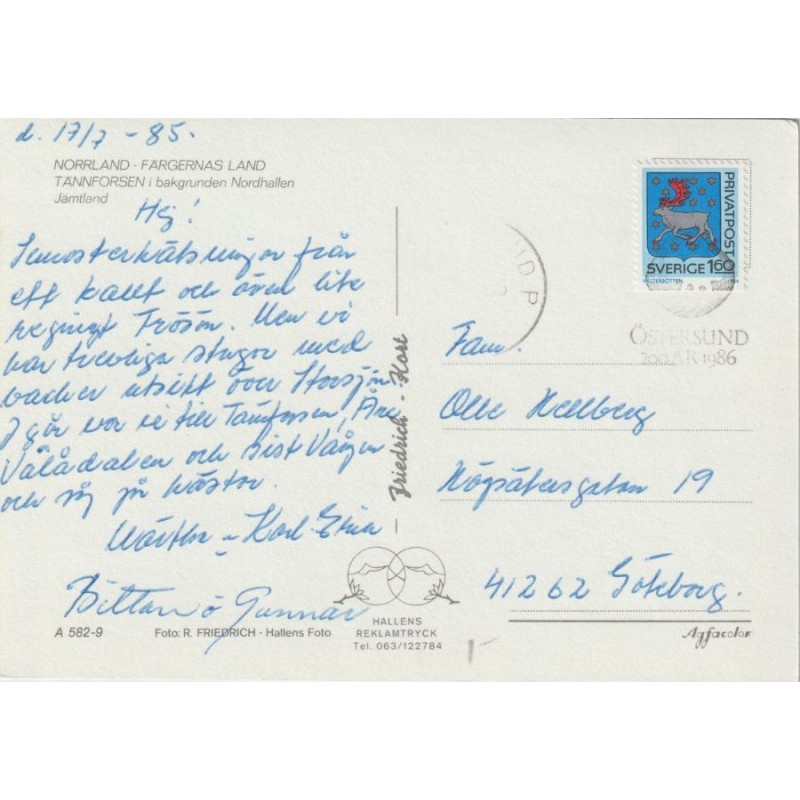 d. 17/7 - 85.
NORRLAND - FÄRGERNAS LAND
TÄNNFORSEN i bakgrunden Nordhallen
Jämtland
Hej!
Semesterhälsningar från
ett kallt och även lite
regnigt Frösön. Men vi
har trevliga stugor med
vacker utsikt över Storsjön
I går var vi till Tännforsen, Åre
Vålådalen och sist Vången
och såg på hästar.
Märtha - Karl-Erik
Bittan o Gunnar
A 582-9
Foto: R. FRIEDRICH - Hallens Foto
Friedrich - Kort
HALLENS
REKLAMTRYCK
Tel. 063/122784
PRIVATPOST
SVERIGE 160
VÄSTERBOTTEN
ÖSTERSUND
200 ÅR 1986
Fam.
Olle Hellberg
Högsätersgatan 19
412 62 Göteborg.
Agfacolor
1-